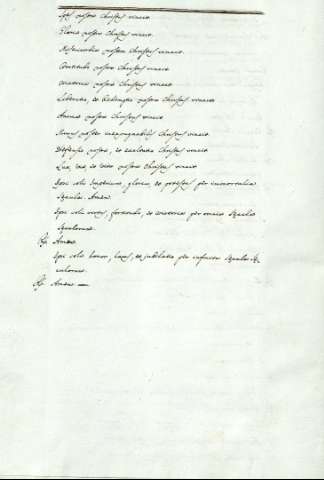 Spes nostra Christus vincit.
Gloria nostra Christus vincit.
Misericordia nostra Christus vincit.
nostra Christus vincit.
Victoria nostra Christus vincit.
Libertas, et Redemptio nostra Christus vincit.
nostra Christus vincit.
Murus noster inexpugnabilis Christus vincit.
Defensio nostra, et exaltatio Christus vincit.
Lux, via, et vita nostra Christus vincit.
Ipsi soli Imperium, gloria, et potestas per immortalia
Sæcula. Amen.
Ipsi soli virtus, fortitudo, et victoria per omnia Sæcula
Sæculorum.
R. Amen.
Ipsi soli honor, laus, et jubilatio per infinita Sæcula Sæ
culorum.
R. Amen —